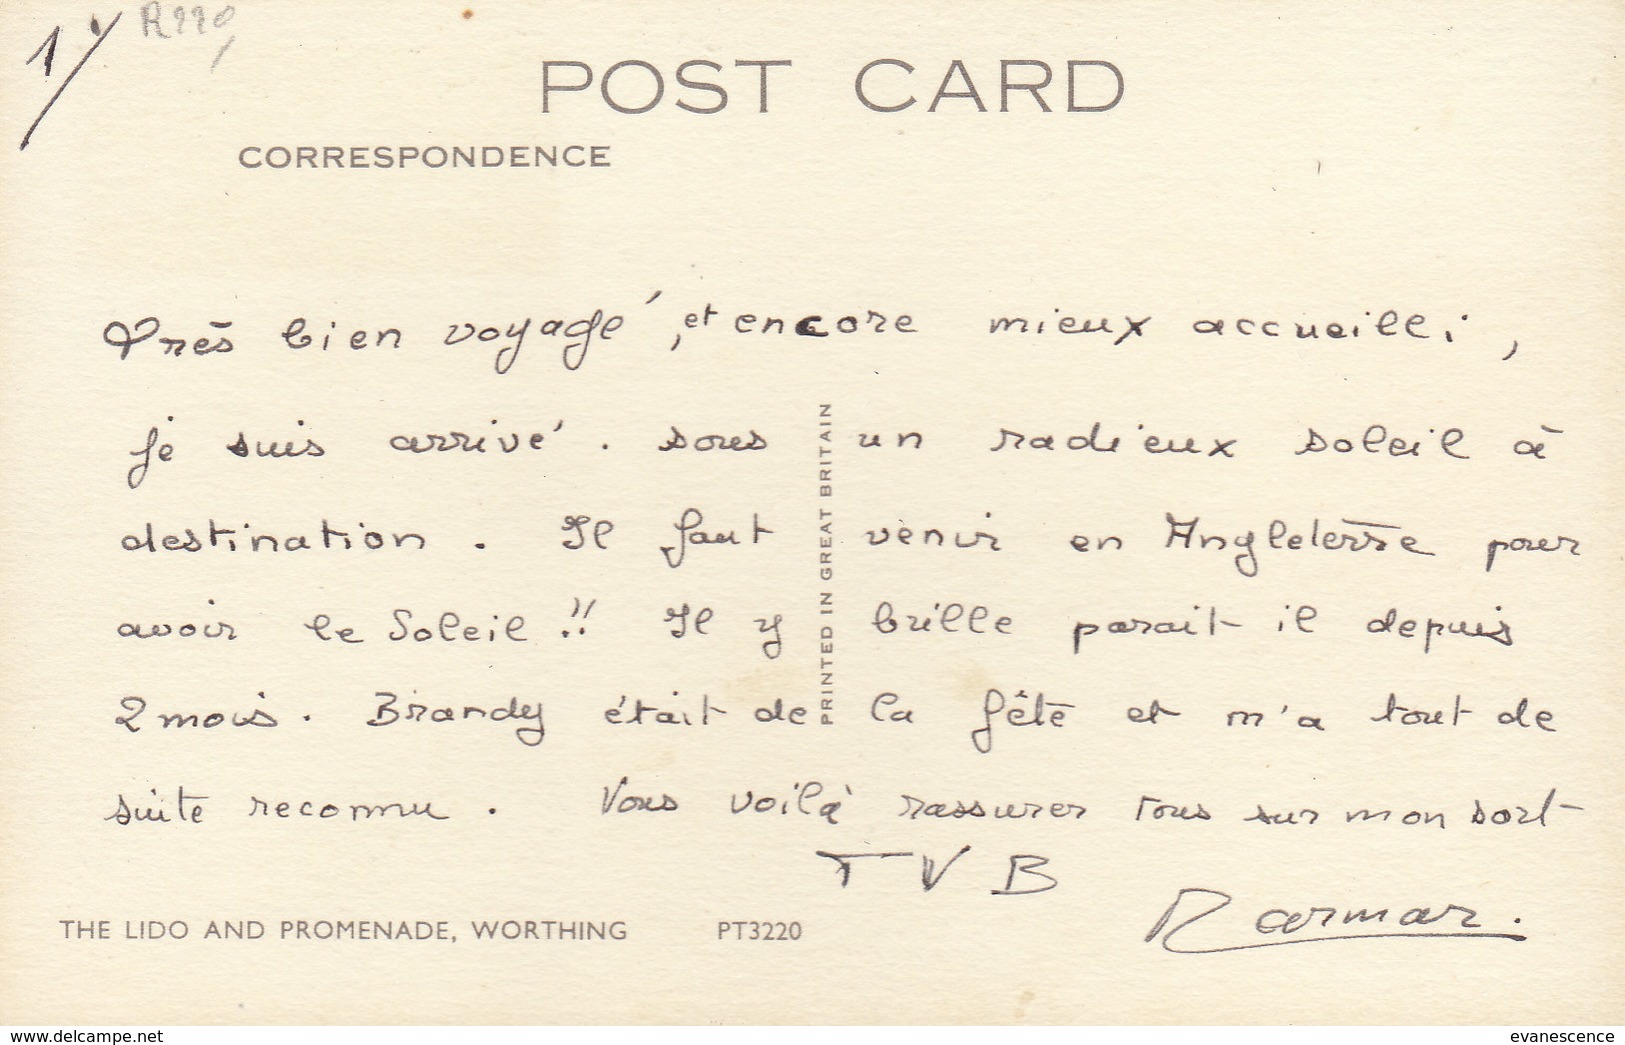 1/
R220
POST CARD
CORRESPONDENCE
Très bien voyagé, et encore mieux accueilli,
je suis arrivé. sous un radieux soleil à
destination. Il faut venir en Angleterre pour
avoir le Soleil !! Il y brille parait il depuis
2 mois. Brandy était de la fête et m'a tout de
suite reconnu. Vous voilà rassurer tous sur mon sort
TVB
PRINTED IN GREAT BRITAIN
THE LIDO AND PROMENADE, WORTHING PT3220
www.delcampe.net
evanescence